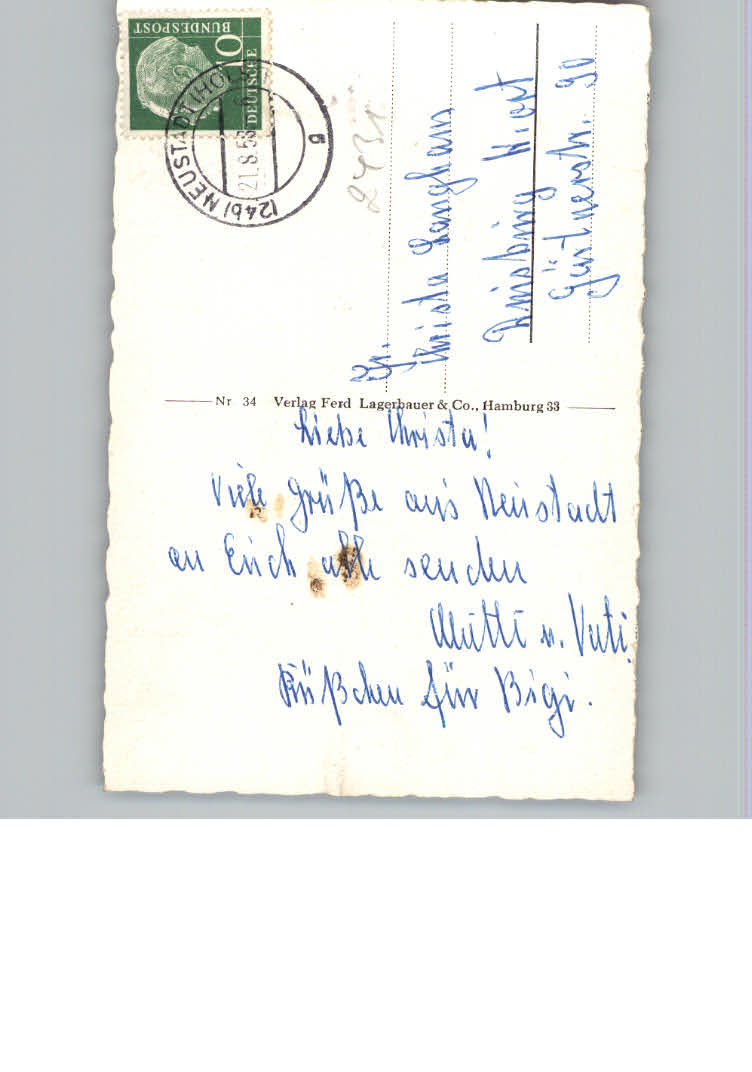 DEUTSCHE
BUNDESPOST
10
(24b) NEUSTADT (HOL
21.8.58
g
Fr.
Christa Langhans
Duisburg
Gärtnerstr. 90
Nr 34 Verlag Ferd Lagerbauer & Co., Hamburg 33
Liebe Christa!
Viele Grüße aus Neustadt
an Euch alle senden
Mutti u. Vati.
Küßchen für Bigi.